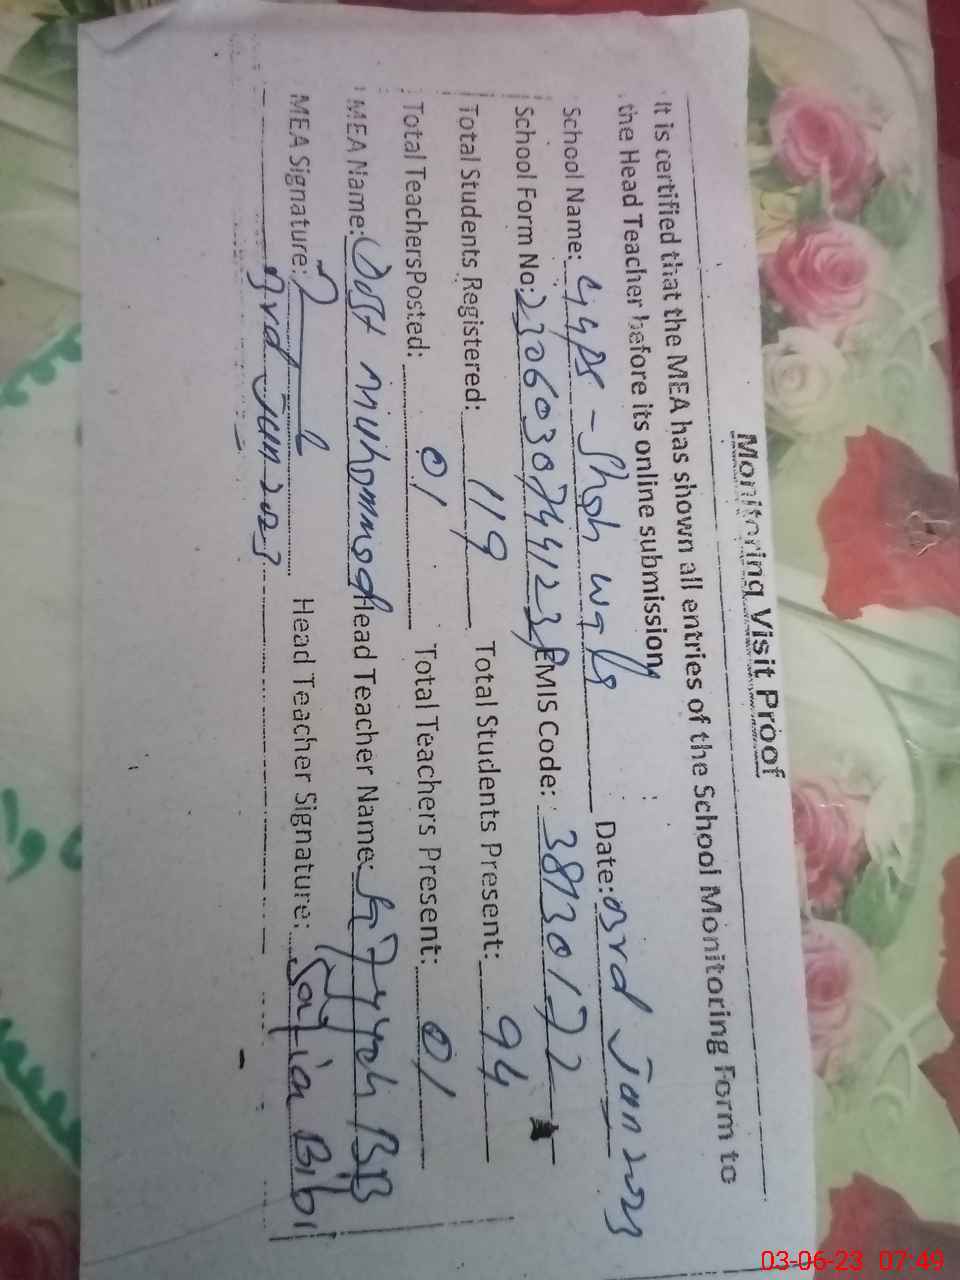 Monitoring Visit Proof
It is certified that the MEA has shown all entries of the School Monitoring Form to
the Head Teacher before its online submission.
School Name: GGPS - Shah wala Date: 03rd Jun 2023
School Form No: EMIS Code: 38130177
Total Students Registered: 119 Total Students Present: 94
Total TeachersPosted: 01 Total Teachers Present: 01
MEA Name: Dost muhammad Head Teacher Name: BiBi
MEA Signature: Head Teacher Signature: Bibi
3rd Jun 2023
03-06-23 07:49